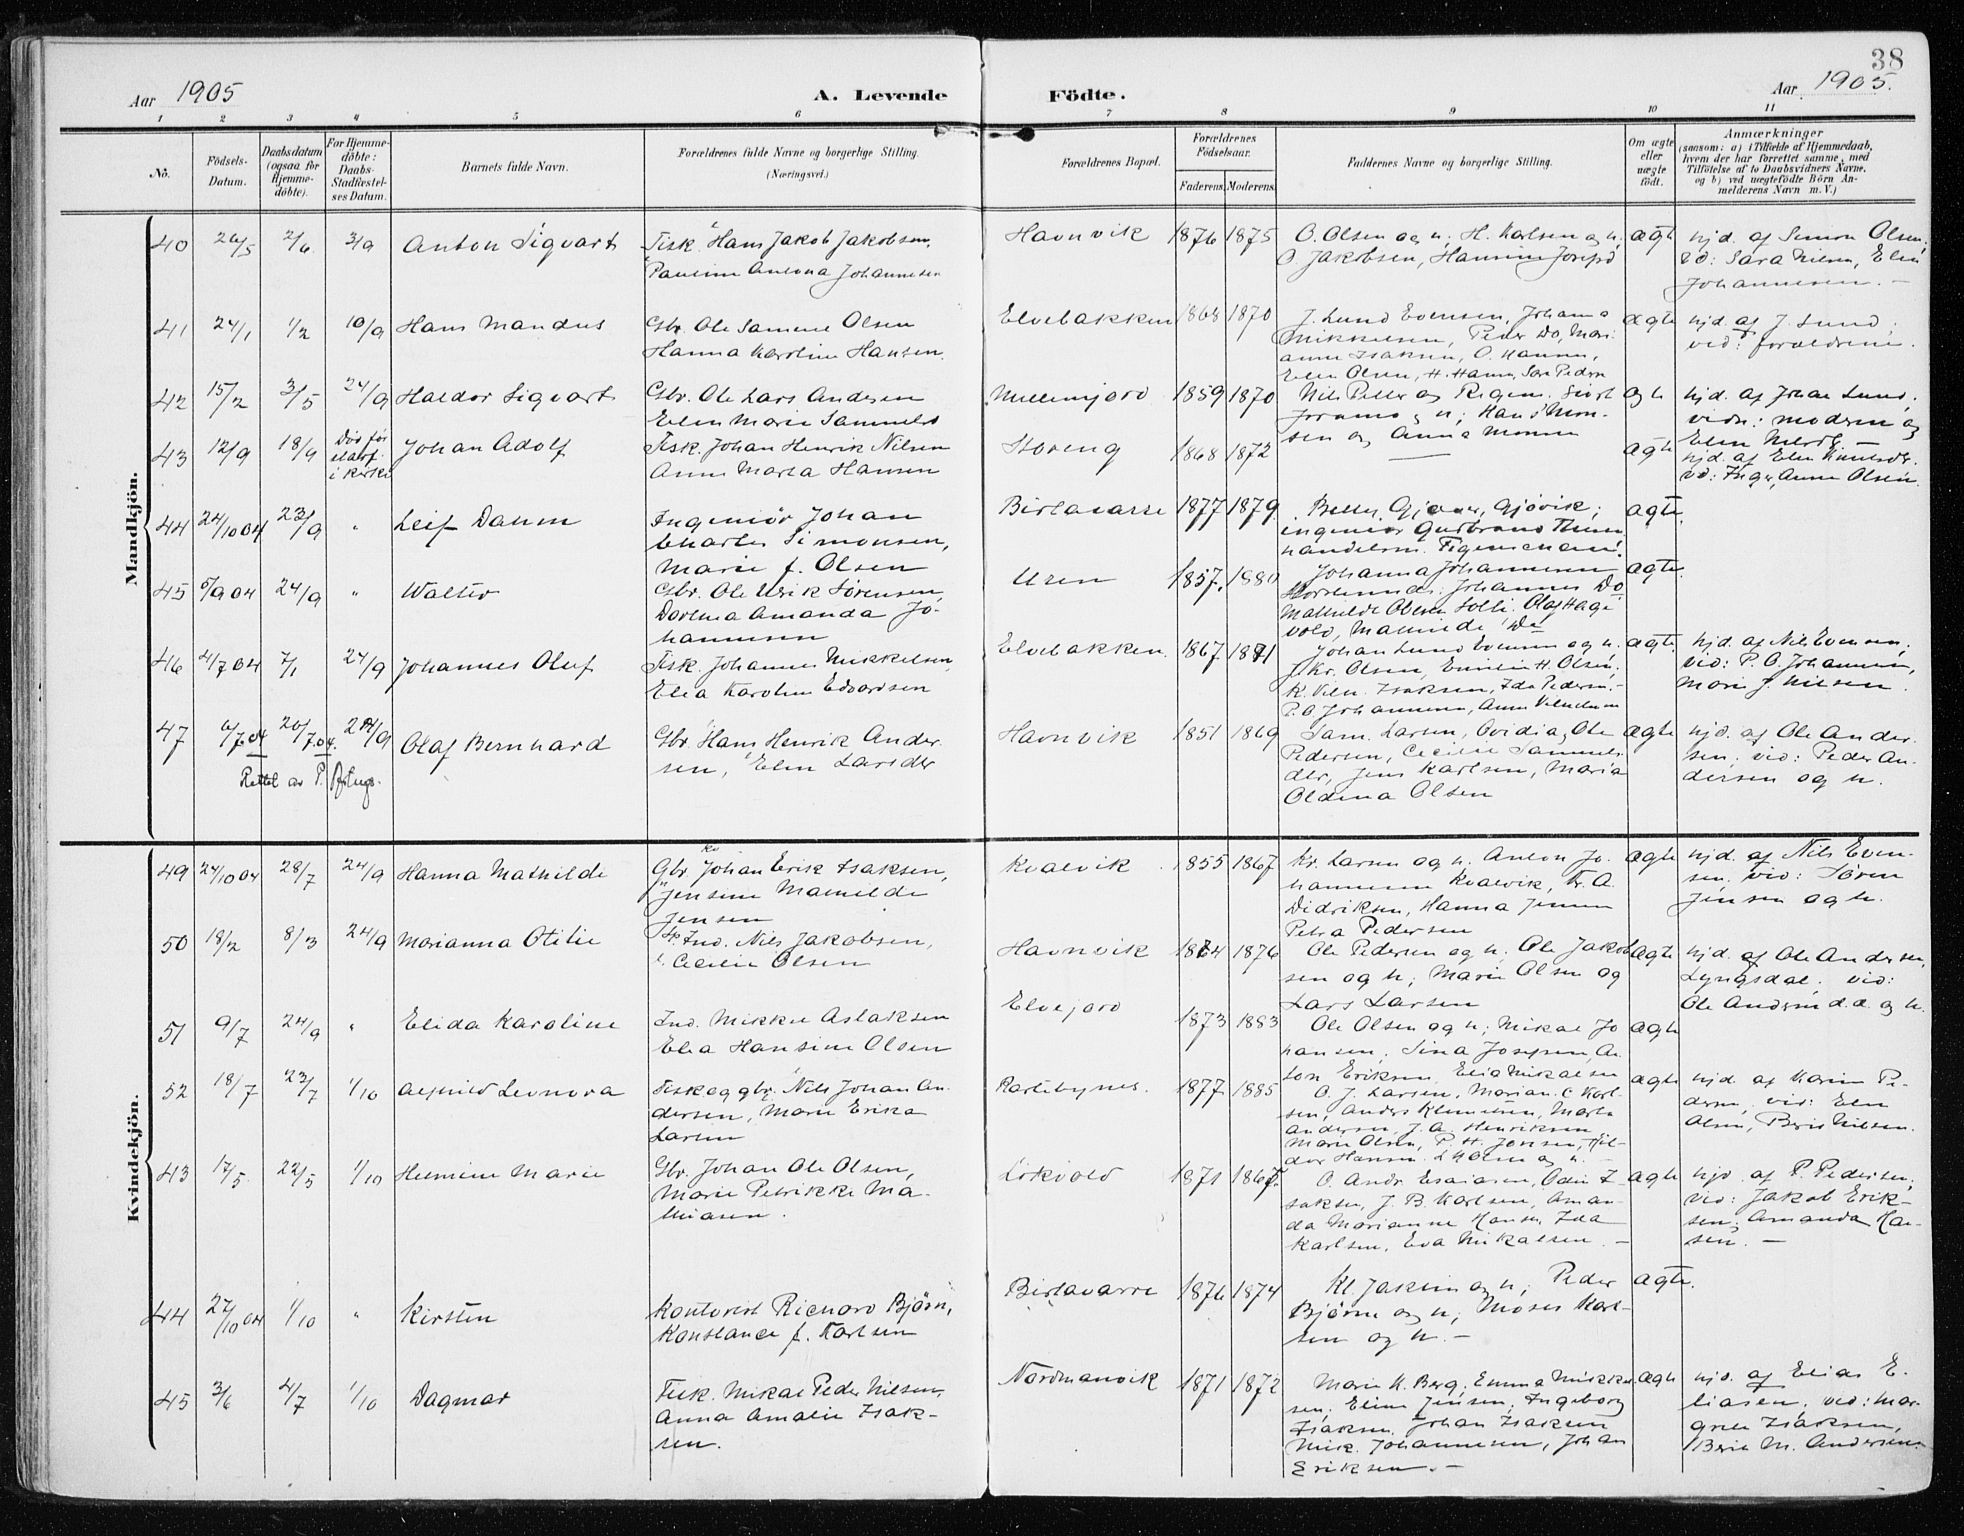 38
Aar 1905
A. Levende
Födte.
Aar 1905.
1 2 3 4 5 6 7 8 9 10 11
No.
Födsels-
Datum.
Daabsdatum
(ogsaa for
Hjemme-
döbte).
For Hjemme-
döbte:
Daabs-
Stadfæstel-
ses Datum.
Barnets fulde Navn.
Forældrenes fulde Navne og borgerlige Stilling.
(Næringsvei.)
Forældrenes Bopæl.
Forældrenes
Födselsaar.
Faderens. Moderens.
Faddernes Navne og borgerlige Stilling.
Om ægte
eller
uægte
födt.
Anmærkninger
(saasom: a) i Tilfælde af Hjemmedaab,
hvem der har forrettet samme, med
Tilföielse af to Daabsvidners Navne,
og b) ved uægtefödte Börn An-
melderens Navn m. V.)
Mandkjön.
40 26/5 2/6 3/9 Anton Sigvart Fisk. Hans Jakob Jakobsen, Havnvik 1876 1875 O. Olsen og h; H. Karlsen og h, ægte hjd. af Simon Olsen;
Pauline Antona Johannesen O. Jakobsen, Hansine Josefsd vid: Sara Nilsen, Elen
Johannesen. —
41 24/1 1/2 10/9 Hans Mandus Gbr. Ole Samuel Olsen Elvebakken 1868 1870 J. Lund Evensen, Johanna ægte hjd. af J. Lund;
Hanna Karoline Hansen. Mikkelsen, Peder Do, Mari- vid: forældrene.
anne Isaksen, O. Hansen,
Elen Olsen, H. Hansen, Sara Peders
42 15/2 3/5 24/9 Haldor Sigvart Gbr. Ole Lars Andersen 1859 1870 Nils Peder og ægte hjd. af Johan Lund;
Elen Marie Samuelsd og h; Hans Mon- vidn: moderen og
sen og Anna Monsen Elen
43 12/9 18/9 Død før Johan Adolf Fisk. Johan Henrik Nilsen Storeng 1868 1872 ægte hjd. af Elen Knutsdr.
stadf. Anne Marta Hansen vid: Inger, Anne Olsen.
i kirke
44 24/10 04 23/9 " Leif Daum Ingeniør Johan Birtavarre 1877 1879 Gjøvik; ægte.
Charles Simonsen, ingeniør Gudbrand
Marie f. Olsen handelsm.
45 5/9 04 24/9 " Walter Gbr. Ole Ulrik Sørensen, Uren 1857. 1880 Johanna Johannesen ægte.
Dortea Amanda Jo- Johannes Do
hannesen Mathilde Olsen Olaf Hage
vold, Mathilde Do
46 4/7 04 7/1 24/9 Johannes Oluf Fisk. Johannes Mikkelsen, Elvebakken. 1867 1871 Johan Lund Evensen og h. ægte hjd. af Nils Evensen;
Elea Karoline Edvardsen Kr. Olsen, Emilie H. Olsen, vid: P. O. Johannesen,
K. Isaksen, Ida Pedersen. Marie J. Nilsen.
P. O. Johannesen, Anna Vilhelmsen
47 6/7.04 20/7.04. 24/9 Olaf Bernhard Gbr. Hans Henrik Ander- Havnvik 1851 1869 Sam. Larsen, Ovidia, Ole ægte hjd. af Ole Ander-
Rettet av P. sen, Elen Larsdr Pedersen, Cecilie Samuels- sen, vid: Peder An-
der, Jens Karlsen, Maria dersen og h.
Oldina Olsen
Kvindekjön.
49 24/10 04 28/7 24/9 Hanna Mathilde Gbr Johan Erik Isaksen, Kvalvik 1855 1867 Kr. Larsen og h. Anton Jo- ægte hjd. af Nils Even-
Jensine Mathilde hannesen Kvalvik, Kr. A. sen, vid: Søren
Jensen Didriksen, Hanna Jensen Jensen og h.
Petra Pedersen
50 18/2 8/3 24/9 Marianna Otilie Ind. Nils Jakobsen, Havnvik 1864 1876 Ole Pedersen og h; Ole Jakob- ægte hjd. af Ole Andersen,
Cecilie Olsen sen og h; Marie Olsen og Lyngsdal, vid:
Lars Larsen Ole Andersen d.æ. og h.
51 9/7 24/9 " Elida Karoline Ind. Mikkel Aslaksen Elvejord 1873 1883 Ole Olsen og h; Mikal Jo ægte
Elea Hansine Olsen hansen, Sina Josefsen, An-
ton Eriksen, Elea Mikalsen
52 18/7 23/7 1/10 Alfhild Leonora Fisk og gbr. Nils Johan An- 1877 1885 O. J. Larsen, Marian. C. Karl- ægte hjd. af Karen Pe-
dersen, Marie Erika sen, Anders Klemetsen, Marta dersen, vid: Elen
Larsen Andersen, J. A. Henriksen Olsen, Berit Nilsen.
Marie Olsen, P. H. Jonsen, Hil-
dor Hansen og h. —
43 17/5. 22/5 1/10 Helmine Marie Gbr. Johan Ole Olsen, Lökvold 1871 1867. O. Andr. Esaiasen, Odin I- ægte hjd. af P. Pedersen,
Marie Petrikke Ma- saksen, J. B. Karlsen, Aman- vid: Jakob Erik-
thiasen. da Marianne Hansen, Ida sen, Amanda Han-
Karlsen, Eva Mikalsen. — sen. —
44 27/10 04 1/10 " Kirsten Kontorist Richard Björn, Birtavarre 1876 1874 Kl. og h; Peder ægte.
Konstance f. Karlsen Björn og h; Moses Karl-
sen og h. —
45 3/6 4/7 1/10 Dagmar Fisk. Mikal Peder Nilsen, Nordmanvik 1871 1872 Marie K. Berg, Emma Mikkel- ægte hjd. af Elias E-
Anna Amalie Isak- sen, Eline Jensen, Ingeborg liasen, vid: Mar-
sen. Isaksen, Johan Isaksen grete Isaksen,
Mik. Johannesen, Johan Berit M. Andersen
Eriksen. —